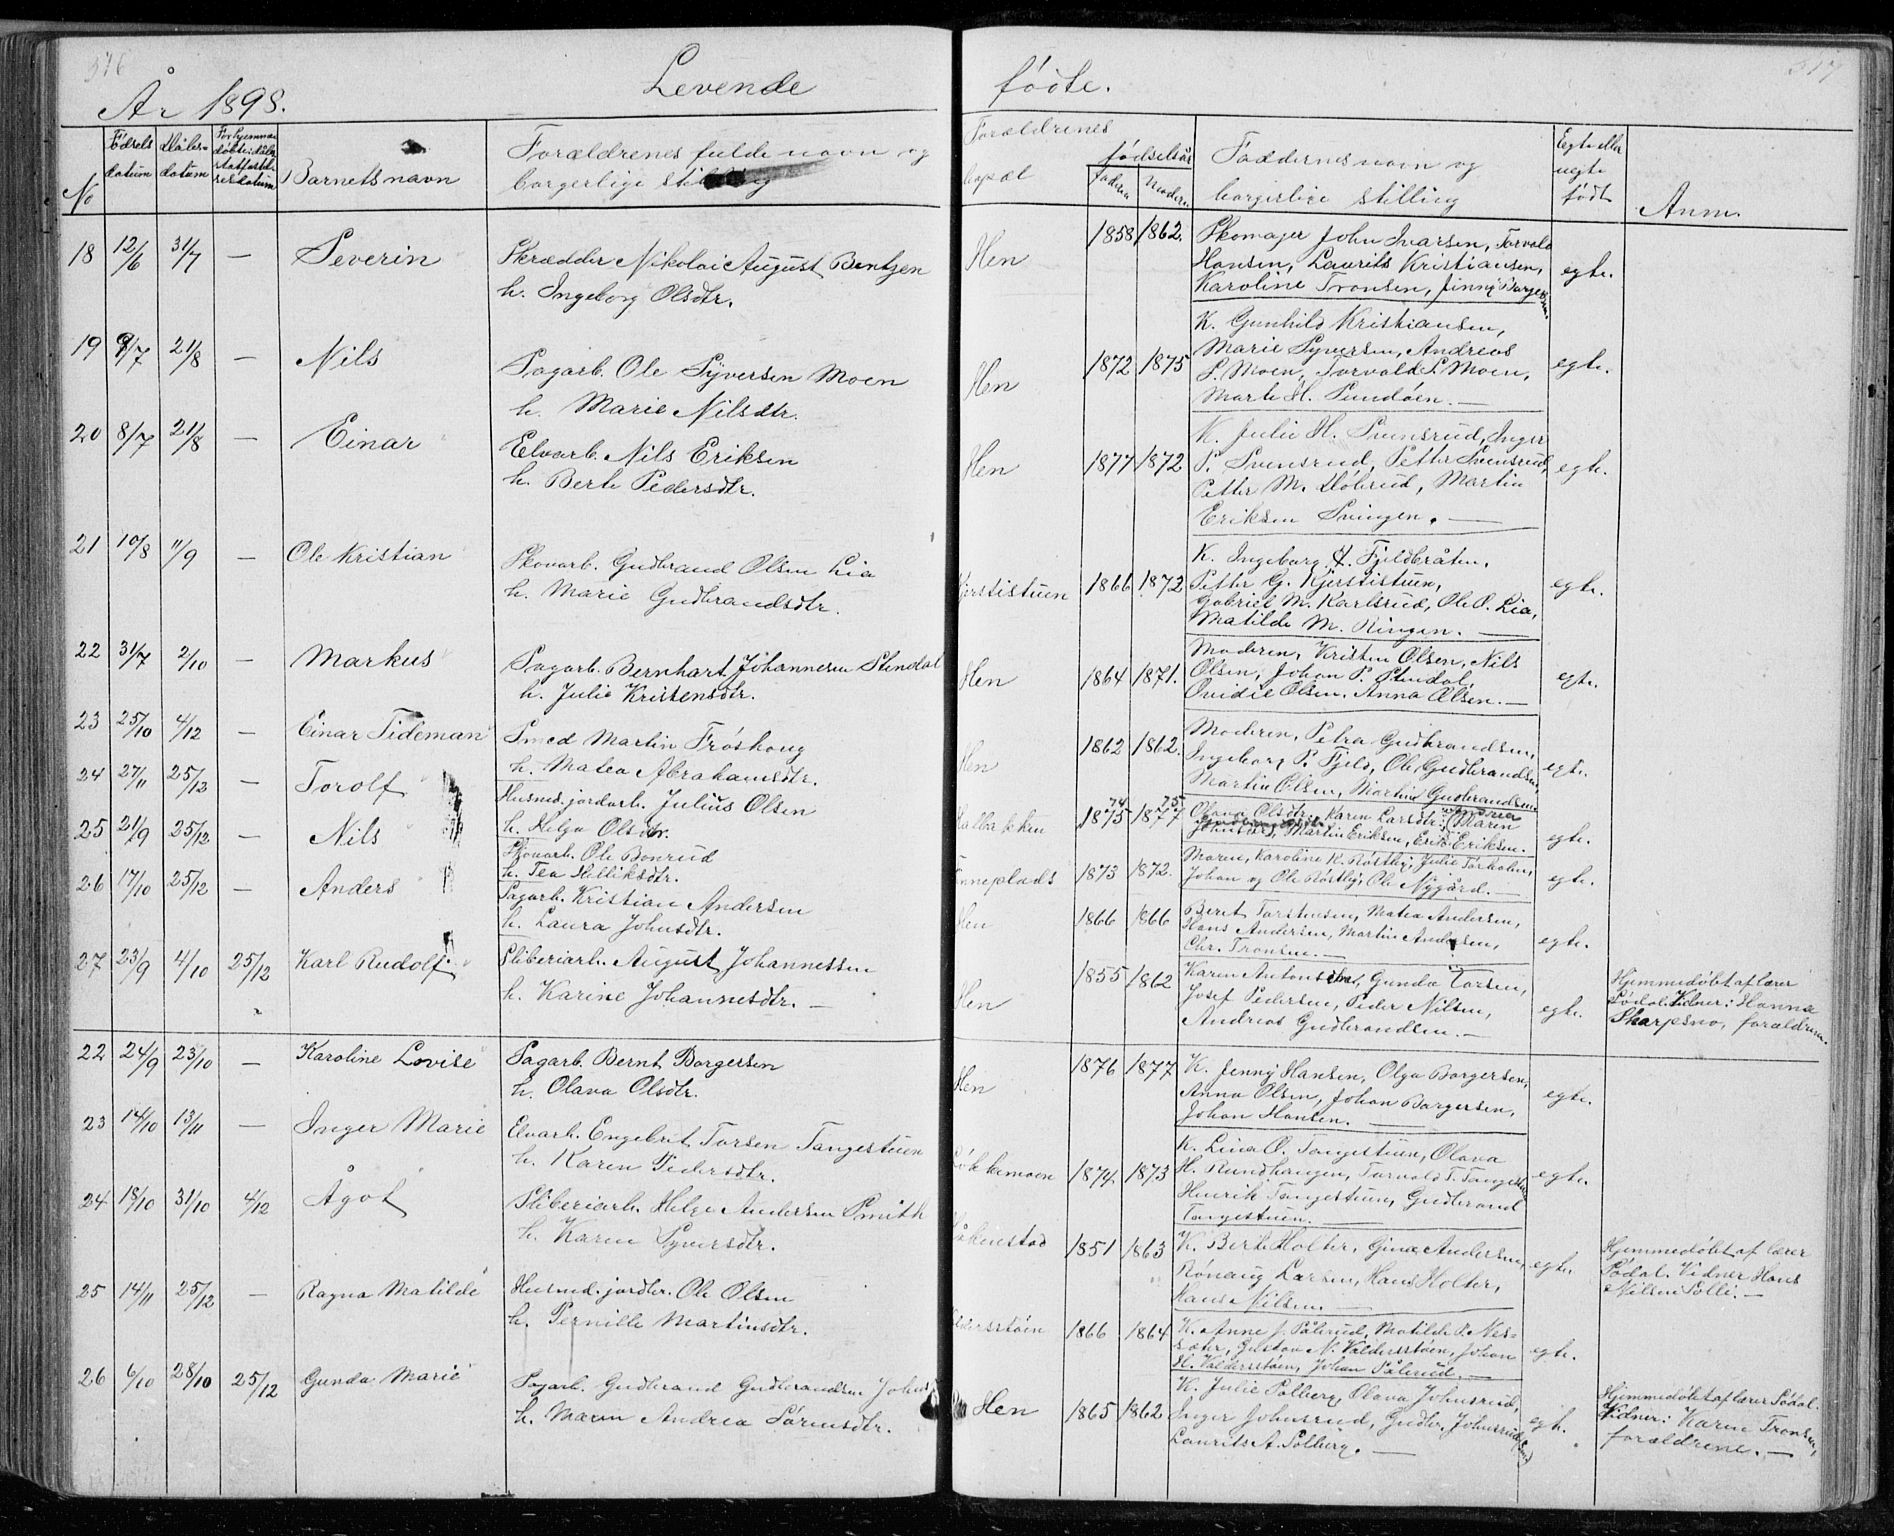 516
År 1898.
Levende
No
Fødsels datum
Dåbs- datum
Barnets navn
Forældrenes fulde navn og
borgerlige stilling
18 12/6 31/7 — Severin Skrædder Nikolai August Bentzen
h. Ingeborg Olsdtr.
19 9/7 21/8 — Nils Sagarb. Ole Syversen Moen
h. Marie Nilsdtr.
20 8/7 21/8 — Einar Elvarb. Nils Eriksen
h. Berte Pedersdtr.
21 10/8 11/9 — Ole Kristian Skovarb. Gudbrand Olsen Lia
h. Marie Gudbrandsdtr.
22 31/7 2/10 — Markus Sagarb. Bernhart Johannesen Stendal
h. Julie Kristensdtr.
23 25/10 4/12 — Einar Tideman Smed Martin Frøshoug
h. Matea Abrahamsdtr.
24 27/11 25/12 — Torolf Husmd. jordarb. Julius Olsen
h. Helga Olsdtr.
25 21/9 25/12 — Nils Skovarb. Ole Bonrud
h. Tea
26 17/10 25/12 — Anders Sagarb. Kristian Andersen
h. Laura Johnsdtr.
27 23/9 4/10 25/12 Karl Rudolf Sliberiarb. August Johannessen
h. Karine Johannesdtr. —
22 24/9 23/10 — Karoline Lovise Sagarb. Bernt Borgersen
h. Olava Olsdtr.
23 14/10 13/11 — Inger Marie Elvarb. Engebrit Torsen Tangestuen
h. Karen Pedersdtr.
24 18/10 31/10 4/12 Ågot Sliberiarb. Helge Andersen Smith
h. Karen Syversdtr.
25 14/11 25/12 — Ragna Matilde Husmd. jordbr. Ole Olsen
h. Pernille Martinsdtr.
26 6/10 28/10 25/12 Gunda Marie Sagarb. Gudbrand Gudbrandsen
h. Maren Andrea Sørensdtr.
517
fødte.
Forældrenes
bopæl
fødselsår
faderen
moderen
Faddernes navn og
borgerlige stilling
Egte eller
uegte
født
Anm.
Hen 1858 1862. Skomager John Ivarsen, Torvald
Hansen, Laurits Kristiansen,
Karoline Tronsen, Jinny Borgersen. egte.
K. Gunhild Kristiansen,
Hen 1872 1875 Marie Syversen, Andreas
S. Moen, Torvald S. Moen,
Marte H. Sundøen. — egte.
K. Julie H. Svensrud, Inger
Hen 1877 1872 P. Svensrud, Petter Svensrud,
Petter M. Døhrud, Martin
Eriksen Svingen. — egte.
K. Ingeborg Fjeldbråten,
Kjerstistuen 1866 1872 Petter G. Kjerstistuen,
Gabriel M. Karlsrud, Ole O. Lia,
Matilde M. Ringen. — egte.
Hen 1864 1871. Moderen, Kristen Olsen, Nils
Olsen, Johan P. Stendal,
Ovidie Olsen, Anna Olsen. — egte.
Hen 1862 1862. Moderen, Petra Gudbrandsen,
Ingeborg P. Fjeld, Ole Gudbrandsen,
Martin Olsen, Martin Gudbrandsen egte.
74 75
1875 1877 Olava Olsdtr. Karen Larsdtr. Maren
Martin Eriksen, Eriksen. egte.
Finneplads 1873 1872. Moren, Karoline K. Røstby, Julie
Johan og Ole Røstby, Ole Nygård. — egte.
Hen 1866 1866 Berit Torstensen, Matea Andersen,
Hans Andersen, Martin Andersen,
Chr. Tronsen. — egte.
Hen 1855 1862 Karen Gunda Torsen,
Josef Pedersen, Peder Nilsen,
Andreas Gudbrandsen. — egte.
Hjemmedøbt af lærer
Sødal. Vidner: Hanna
Skarpsno, forældrene.
Hen 1876 1877 K. Jenny Hansen, Olga Borgersen,
Anna Olsen, Johan Borgersen,
Johan Hansen. — egte.
Løkkemoen 1874. 1873 K. Lina O. Tangestuen, Olava
H. Rundhaugen, Torvald T. Tangestuen
Henrik Tangestuen, Gudbrand
Tangestuen. — egte.
1851 1863 K. Berte Holter, Gina Andersen,
Rønaug Larsen, Hans Holter,
Hans Nilsen. — egte.
Hjemmedøbt af lærer
Sødal. Vidner Hans
Nilsen Solli. —
1866 1864 K. Anne J. Sålerud, Matilde P. Nes-
Gustav N. Valdersstøen, Johan
H. Valdersstøen, Johan Sålerud. — egte.
Hen 1865 1862 K. Julie Solberg, Olava Johnsrud,
Inger Johnsrud, Gudbr. Johnsrud
Laurits A. Solberg. — egte.
Hjemmedøbt af lærer Sødal.
Vidner: Karen Tronsen,
forældrene. —